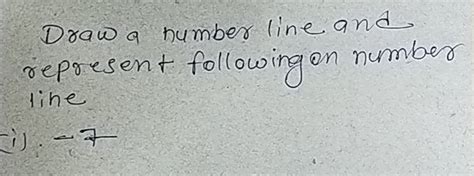 Draw a number line and
represent following on number
line
(i). -7